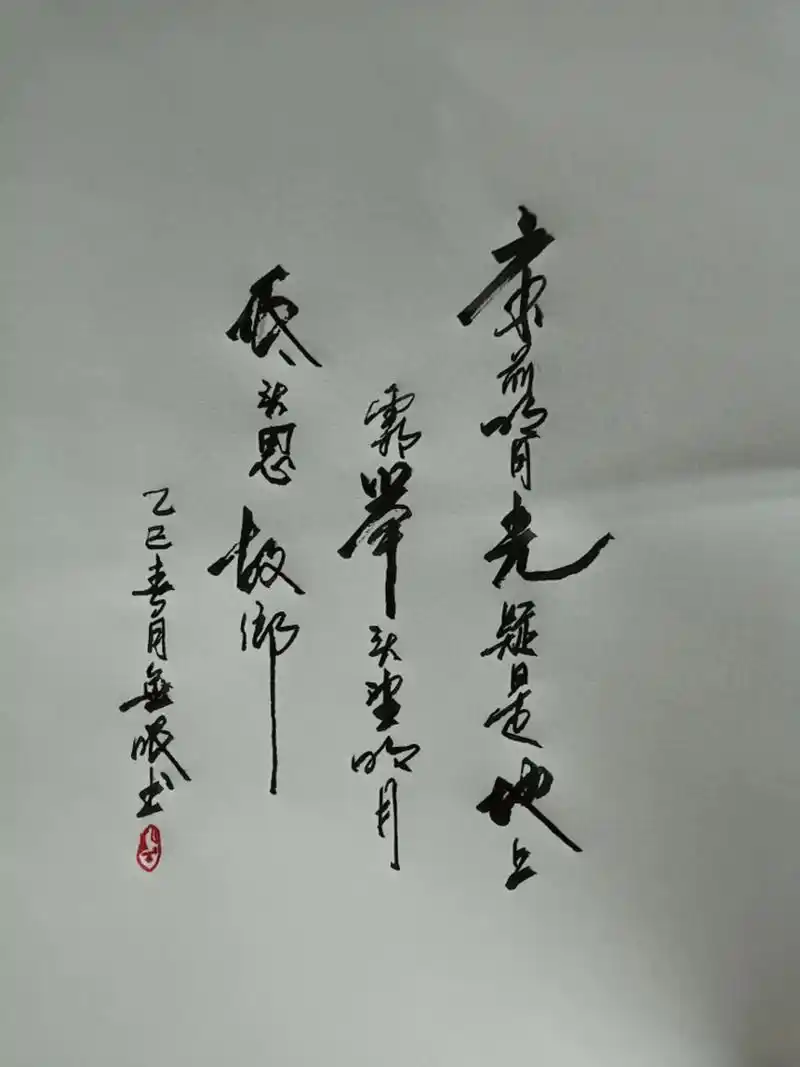 床前明月光疑是地上
霜舉头望明月
低头思故鄉
乙巳春月無眠书